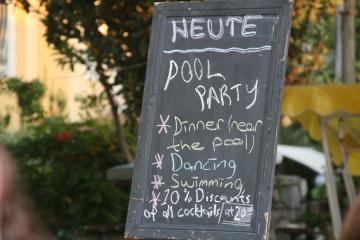 HEUTE
POOL
PARTY
* Dinner (near
the pool)
* Dancing
* Swimming
* 20% Discounts
of all cocktails/at 20:00